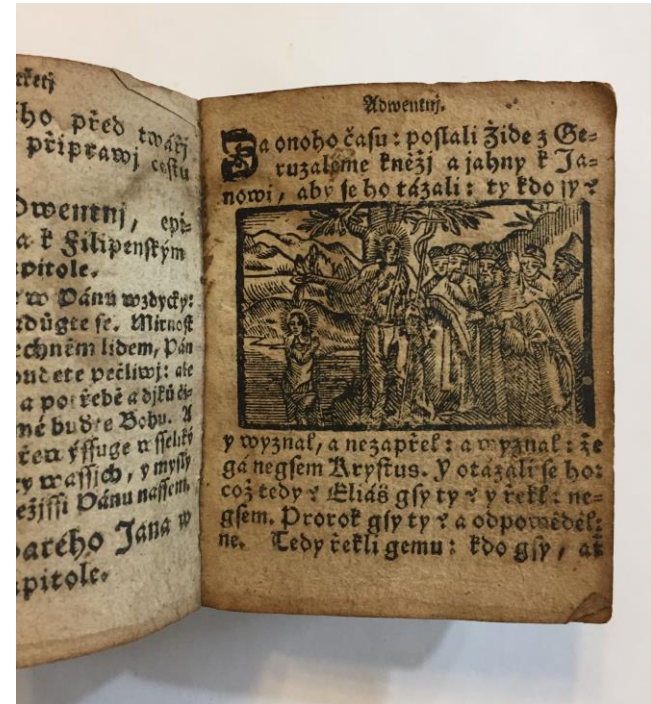 třetj
ho před twářj
připrawj cestu
dwentnj, epi-
a k Filipenským
pitole.
w Pánu wzdycky:
radůgte se. Mirnost
echněm lidem, Pán
buďete pečliwj: ale
a potřebě a djků či-
né buďte Bohu. A
řew ýssuge wsseliký
y wassjch, y mysly
Ježjssi Pánu nassem.
warého Jana w
pitole.
Adwentnj.
Za onoho času: poslali Židé z Ge-
ruzaléme kněžj a jahny k Ja-
nowi, aby se ho tázali: ty kdo sy?
y wyznal, a nezapřel: a wyznal: že
gá negsem Krystus. Y otázali se ho:
což tedy? Eliáš gsy ty? y řekl: ne-
gsem. Prorok gsy ty? a odpowěděl:
ne. Tedy řekli gemu: kdo gsy, ať